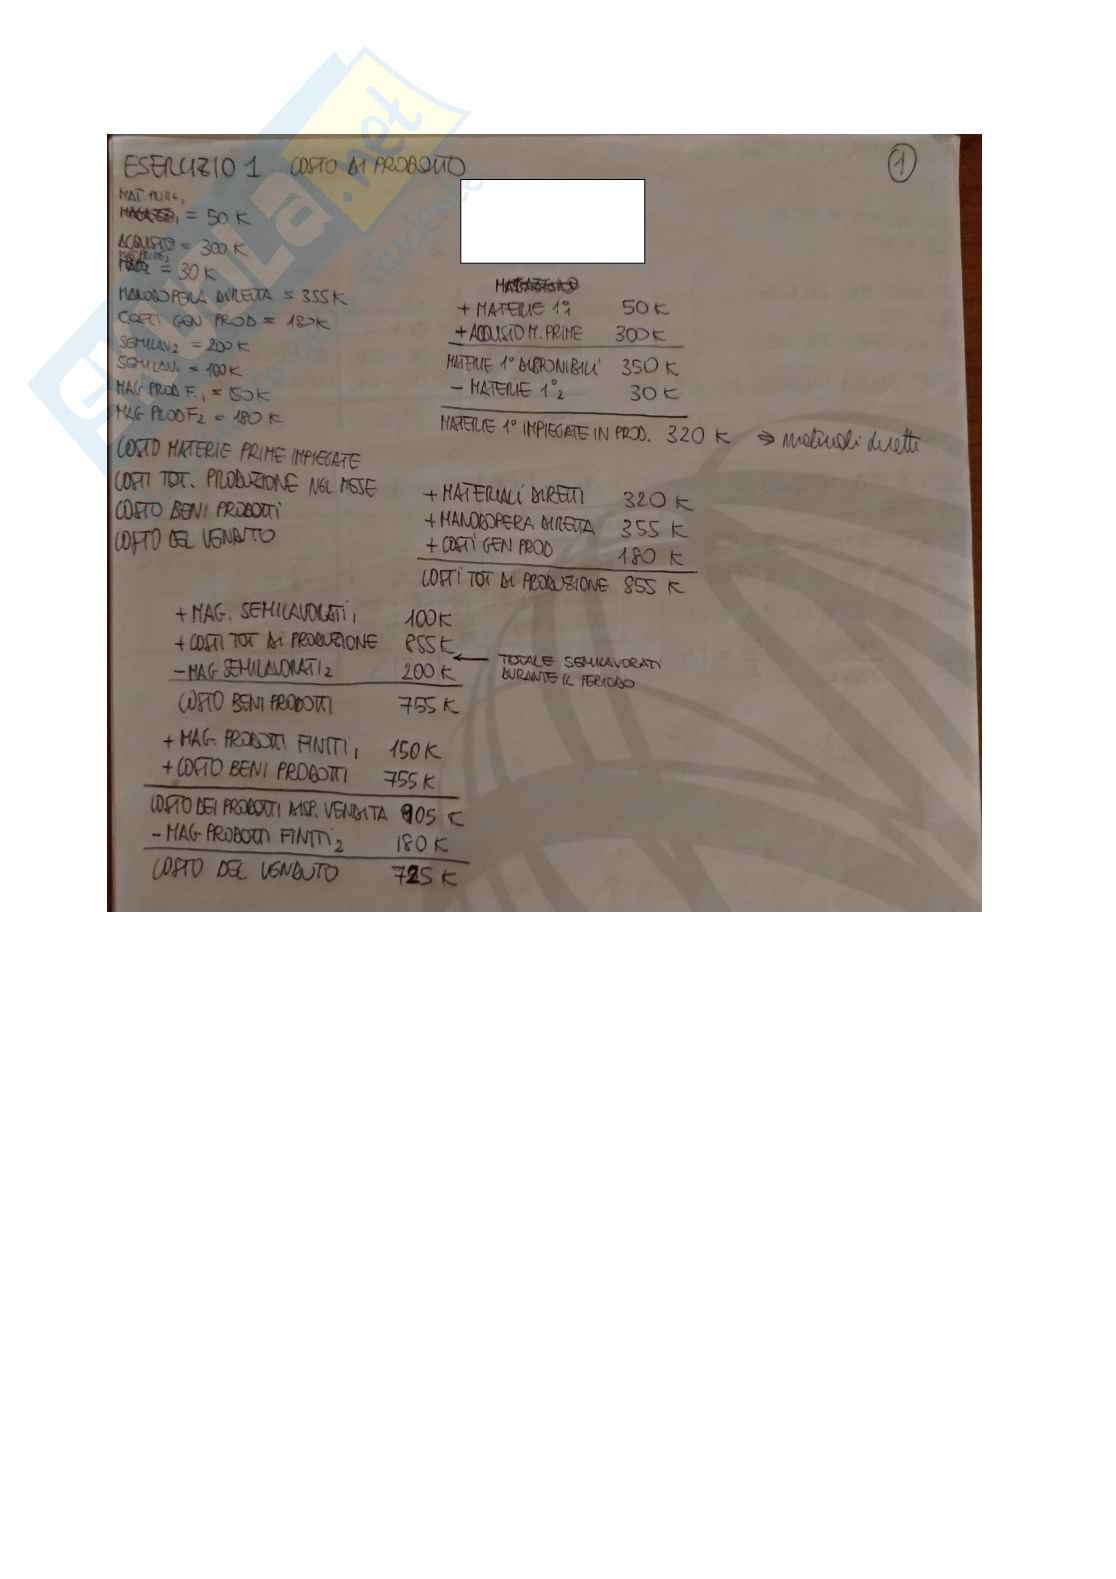 ESERCIZIO 1 COSTO DI PRODOTTO
1
MAT. PRIME1
= 50 K
ACQUISTO = 300 K
= 30 K
MANODOPERA DIRETTA = 355 K
COSTI GEN PROD = 180K
SEMILAV2 = 200 K
SEMILAV1 = 100 K
MAG PROD F.1 = 150 K
MAG PROD F2 = 180 K
COSTO MATERIE PRIME IMPIEGATE
COSTI TOT. PRODUZIONE NEL MESE
COSTO BENI PRODOTTI
COSTO DEL VENDUTO
+ MATERIE 1°1 50 K
+ ACQUISTO M. PRIME 300 K
MATERIE 1° DISPONIBILI 350 K
- MATERIE 1°2 30 K
MATERIE 1° IMPIEGATE IN PROD. 320 K ⇒ materiali diretti
+ MATERIALI DIRETTI 320 K
+ MANODOPERA DIRETTA 355 K
+ COSTI GEN PROD 180 K
COSTI TOT DI PRODUZIONE 855 K
+ MAG. SEMILAVORATI1 100K
+ COSTI TOT DI PRODUZIONE 855K
- MAG SEMILAVORATI2 200 K
← TOTALE SEMILAVORATI
DURANTE IL PERIODO
COSTO BENI PRODOTTI 755 K
+ MAG. PRODOTTI FINITI1 150 K
+ COSTO BENI PRODOTTI 755 K
COSTO DEI PRODOTTI DISP. VENDITA 905 K
- MAG PRODOTTI FINITI2 180 K
COSTO DEL VENDUTO 725 K